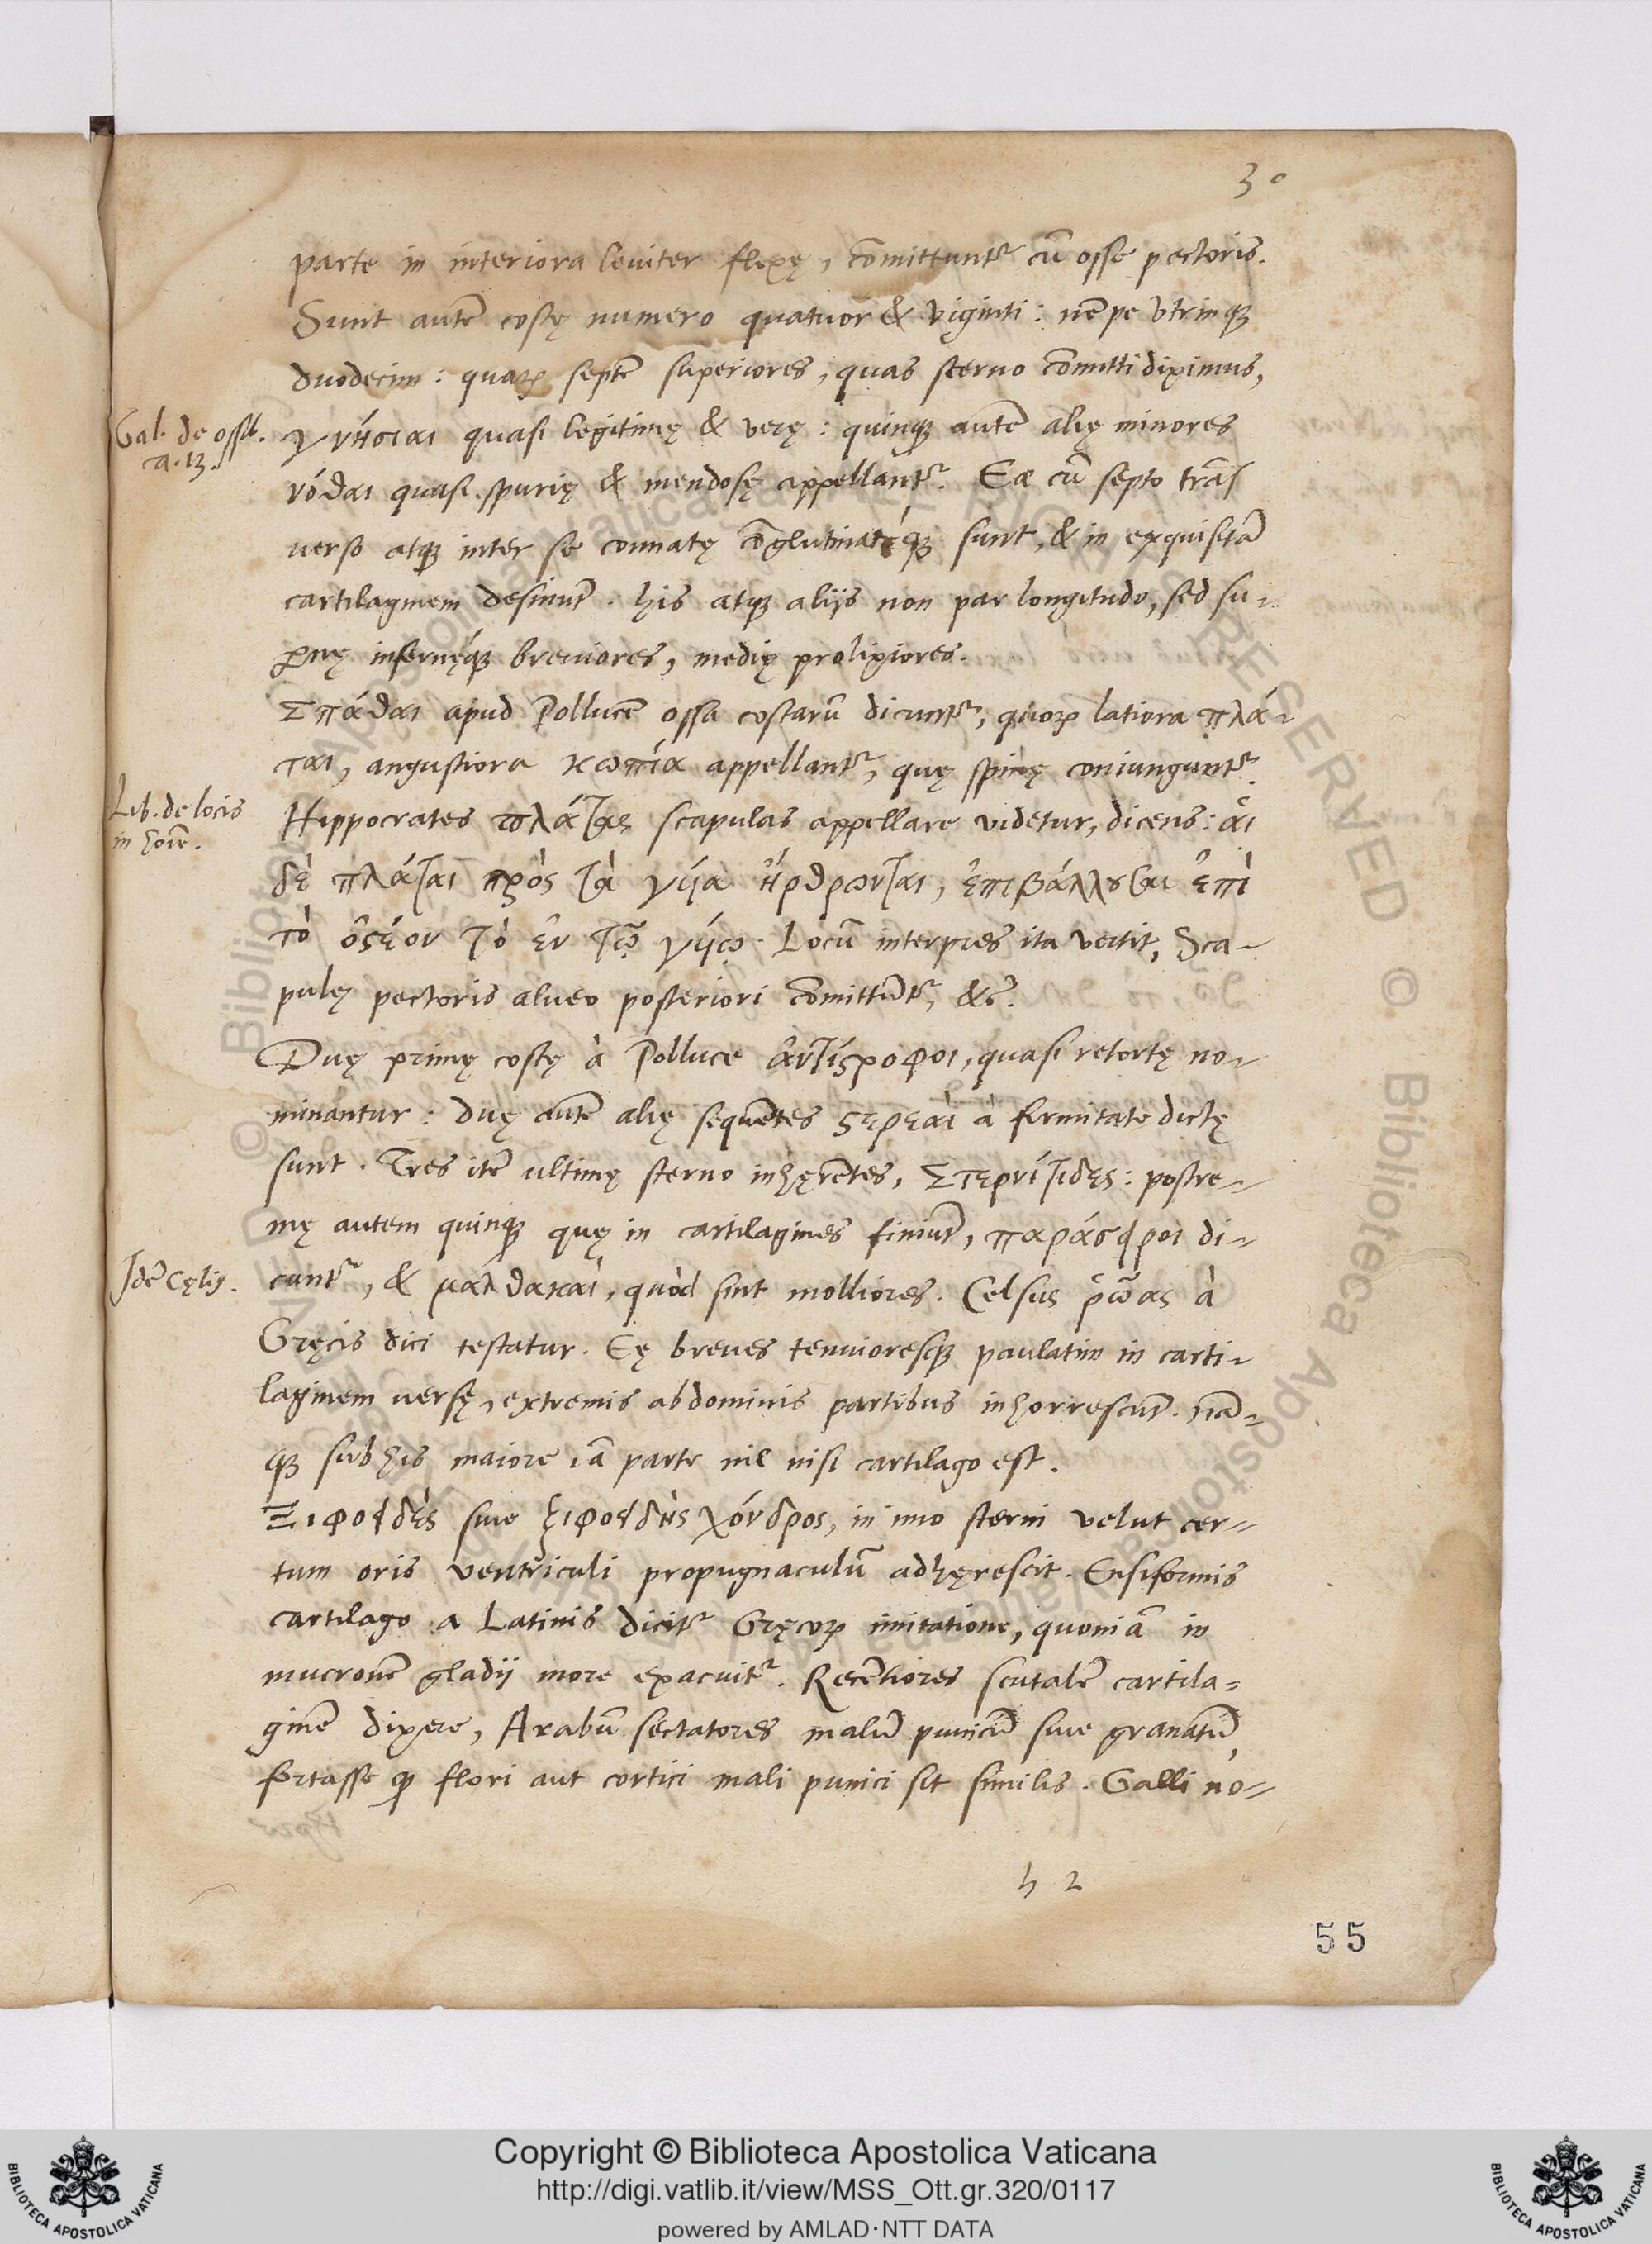 30
parte in interiora leuiter flexę, cõmittuntʳ cũ osse pectoris.
Sunt autẽ costę numero quatuor & viginti: nẽpe vtrinqꝫ
duodecim: quaꝝ septẽ superiores, quas sterno cõmitti diximus,
Gal. de ossib.
ca. 13.
γνήσιαι quasi legitimę & verę: quinqꝫ autẽ alię minores
νόθαι quasi spurię & mendosę appellantʳ. Eæ cũ septo trãs
uerso atqꝫ inter se connatę cõglutinatęqꝫ sunt, & in exquisitã
cartilaginem desinũt. his atqꝫ aliis non par longitudo, sed su-
ꝑnę infernęqꝫ breuiores, medię prolixiores.
Σπάθαι apud Pollucẽ ossa costarũ dicuntʳ, quoꝝ latiora πλά-
ται, angustiora κωπία appellantʳ, quę spinę coniunguntʳ.
Lib. de locis
in hoĩe.
Hippocrates πλάτας scapulas appellare videtur, dicens: αἱ
δὲ πλάται πρὸς τὰ γυῖα ἤρθρωνται, ἐπιβάλλουσαι ἐπὶ
τὸ ὀστέον τὸ ἐν τῷ γυίῳ. Locũ interpres ita vertit, Sca-
pulę pectoris alueo posteriori cõmittũtʳ, &c.
Duę primę costę à Polluce ἀντίστροφοι, quasi retortę no-
minantur: duę autẽ alię sequẽtes στερεαὶ à firmitate dictę
sunt. Tres itẽ ultimę sterno inhęrẽtes, Στερνίτιδες: postre-
mę autem quinqꝫ quę in cartilagines finiũt, παράσφροι di-
Idẽ Cęlij.
cuntʳ, & μαλθακαὶ, quòd sint molliores. Celsus ῥῶας à
Gręcis dici testatur. Eę breues tenuioresqꝫ paulatim in carti-
laginem uersę, extremis abdominis partibus inhorrescũt. nã-
qꝫ sub his maiore iã parte nil nisi cartilago est.
Ξιφοειδὲς siue ξιφοειδὴς χόνδρος, in imo sterni velut cer-
tum oris ventriculi propugnaculũ adhęrescit. Ensiformis
cartilago a Latinis dicitʳ Gręcoꝝ imitatione, quoniã in
mucronẽ gladij more exacuitʳ. Recẽtiores scutalẽ cartila-
ginẽ dixere, Arabũ sectatores malũ punicũ siue granatũ,
fortasse ꝙ flori aut cortici mali punici sit similis. Galli no-
h 2
55
© Biblioteca Apostolica Vaticana
Copyright © Biblioteca Apostolica Vaticana
http://digi.vatlib.it/view/MSS_Ott.gr.320/0117
powered by AMLAD·NTT DATA
BIBLIOTECA APOSTOLICA VATICANA
BIBLIOTECA APOSTOLICA VATICANA